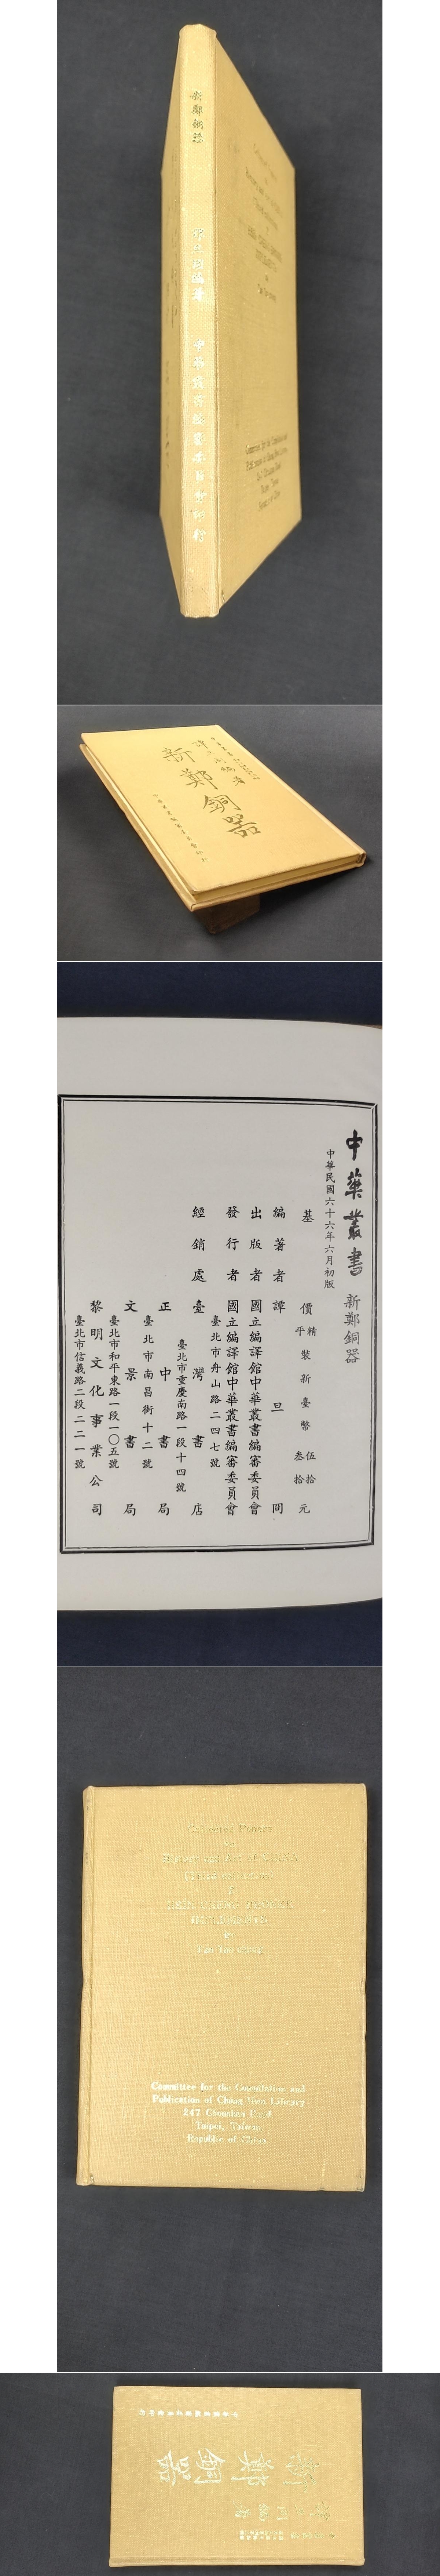 新鄭銅器
中華叢書編審委員會印行
新鄭銅器
編著
中華叢書 新鄭銅器
中華民國六十六年六月初版
基 價 精裝新臺幣伍拾元
平 叁拾
編著者 譚旦冏
出版者 國立編譯館中華叢書編審委員會
發行者 國立編譯館中華叢書編審委員會
臺北市舟山路二四七號
經銷處 臺灣書店
臺北市重慶南路一段十四號
正中書局
臺北市南昌街十二號
文景書局
臺北市和平東路一段一〇五號
黎明文化事業公司
臺北市信義路二段二二一號
Collected Papers
on
History and Art of CHINA
by
Committee for the Compilation and
Publication of Chung Hwa Library
247 Choushan Road
Taipei, Taiwan
Republic of China
新鄭銅器